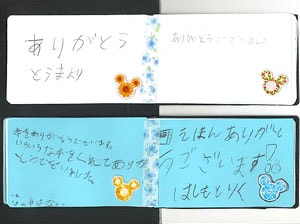 ありがとう
とうまより
ありがとうございました
本をありがとうございます。
いろいろな本をくれてありが
とうございました。
えほんありがと
うございます!
はしもとりく